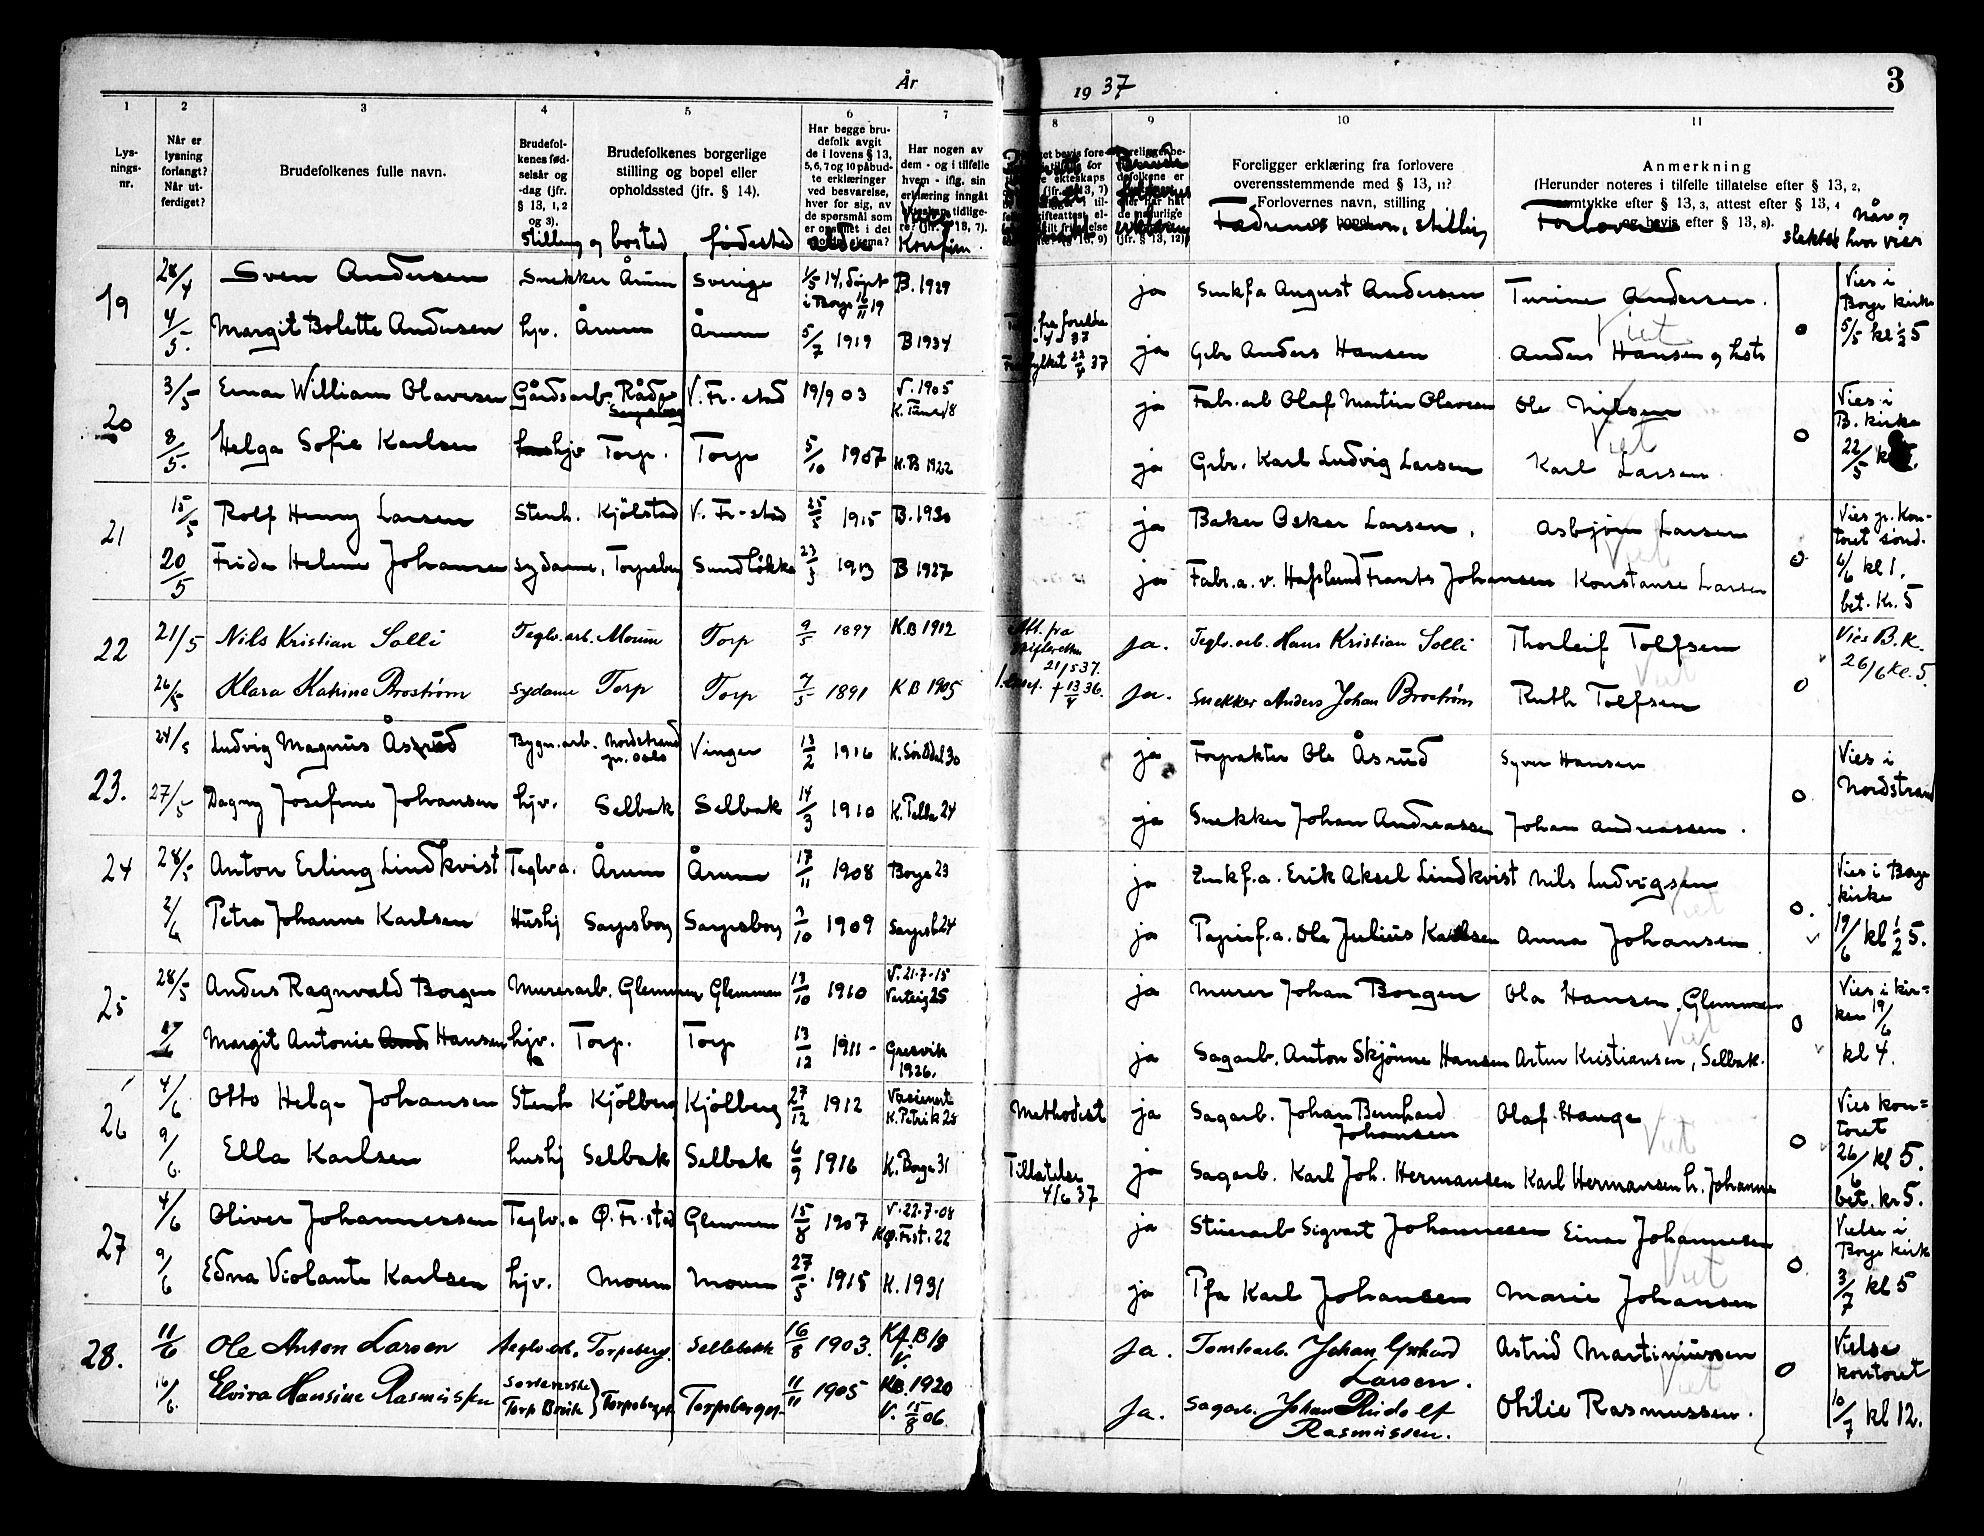 År 1937 3
1 2 3 4 5 6 7 8 9 10 11
Lys-
nings-
nr.
Når er
lysning
forlangt?
Når ut-
ferdiget?
Brudefolkenes fulle navn.
Brudefol-
kenes fød-
selsår og
-dag (jfr.
§ 13, 1, 2
og 3).
Brudefolkenes borgerlige
stilling og bopel eller
opholdssted (jfr. § 14).
Har begge bru-
defolk avgit
de i lovens § 13,
5, 6, 7 og 10 påbud-
te erklæringer
ved besvarelse,
hver for sig, av
de spørsmål som
Har nogen av
dem - og i tilfelle
hvem - iflg. sin
erklæring inngått
Foreligger erklæring fra forlovere
overensstemmende med § 13, 11?
Forlovernes navn, stilling
og bopel.
Anmerkning
(Herunder noteres i tilfelle tillatelse efter § 13, 2,
samtykke efter § 13, 3, attest efter § 13, 4
og bevis efter § 13, 8).
stilling og bosted fødested alder Konfirm.
Fædrenes navn, stilling Forlovere slektsk Når og hvor viet
19 28/4 Sven Andersen Snekker Årum Sverige 1/5 14, døpt i Borge 16/11 19 B. 1929 ja August Andersen Turine Andersen. Vies i Borge kirke 5/5 kl ½ 5
4/5. Margit Bolette Andersen hjv. Årum Årum 5/7 1919 B 1934 ja Grbr Anders Hansen Anders Hansen o Viet
20 3/5 Einar William Olavesen Gårdsarb. V. Fr.-stad 19/9 03 V. 1905 ja Fabr.arb Olaf Martin Olavesen Ole Nilsen Vies i B. kirke 22/5
8/5. Helga Sofie Karlsen hjv Torp. Torp 5/10 1907 K.B 1922 ja Grbr. Karl Ludvig Larsen Karl Larsen. o Viet
21 15/5 Rolf Henry Larsen Stenh. Kjölstad V. Fr-stad 25/5 1915 B. 1930 ja Baker Oskar Larsen, Asbjørn Larsen Vies pr. Kon-
toret sønd. 6/6 kl 1. bet. Kr. 5
20/5 Frida Helene Johansen sydame, Torpeberg Sundløkka 23/3 1913 B 1927 ja Fabr.a.v. Hafslund Frants Johansen Konstanse Larsen o Viet
22 21/5 Nils Kristian Solli Teglv.arb. Moum Torp 9/5 1897 K.B 1912 Att. fra skifteretten 21/5 37. ja. Teglv.arb. Hans Kristian Solli Thorleif Tolfsen Vies B.K. 26/6 kl. 5.
26/5 Klara Katrine Brostrøm sydame Torp Torp 7/5 1891 K B 1905 † 13/4 36. ja. Snekker Anders Johan Brostrøm Ruth Tolfsen o Viet
23. 24/5 Ludvig Magnus Åsrud Bygn.arb. Nordstrand pr. Oslo Vinger 13/2 1916 ja Forpakter Ole Åsrud Syver Hansen Vies i Nordstrand
27/5 Dagny Josefine Johansen hjv. Selbak Selbak 14/3 1910 ja Snekker Johan Andreassen Johan Andreassen. o
24 28/5 Anton Erling Lindkvist Teglv a. Årum Årum 17/11 1908 Borge 23 ja Zinkf.a. Erik Aksel Lindkvist Nils Ludvigsen Vies i Borge kirke 19/6 kl ½ 5.
2/6 Petra Johanne Karlsen Hushj Sarpsborg Sarpsborg 3/10 1909 Sarpsb 24 ja Papirf.a. Ole Julius Karlsen Anna Johansen o. Viet
25 28/5 Anders Ragnvald Borgen Murerarb. Glemmen Glemmen 13/10 1910 V. 21-7-15 ja Murer Johan Borgen Ola Hansen, Glemmen Vies i kir=
ken 19/6 kl 4.
Margit Antonie Hansen hjv. Torp. Torp 13/12 1911 - Gresvik 1926. ja Sagarb. Anton Skjønne Hansen Artur Kristiansen, Selbak. o Viet
26 4/6 Otto Helge Johansen Stenh Kjölberg Kjölberg 27/12 1912 Methodist ja Sagarb. Johan Bernhard Johansen Olaf Hauge Vies kon=
toret 26/6 kl 5. bet. kr 5.
9/6. Ella Karlsen hushj Selbak Selbak 6/9 1916 K. Borge 31 Tillatelse 4/6 37 ja Sagarb. Karl Joh. Hermansen Karl Hermansen h. Johanne o Viet
27 4/6 Oliver Johannessen Teglv.a Ø. Fr. stad Glemmen 15/8 1907 V. 22-7-08 ja Stuerarb Sigvart Johannesen Einar Johannesen Vielse i Borge kirke 3/7 kl 5
9/6 Edna Violante Karlsen hjv. Moum Moum 27/5. 1915 K. 1931 ja Pfa Karl Johansen Marie Johansen o Viet
28. 11/6 Ole Anton Larsen Teglv.arb. Torpeberg. Sellebakk 16/8 1903. Kf. B 18 V. ja. Tomtarb. Johan Gerhard Larsen. Astrid Martiniussen Vielse kontoret 10/7 kl 12.
16/6. Elvira Hansine Rasmussen Torp Bruk Torpeberget Torpeberget 11/11 1905 KB. 1920 V. 15/8 06. ja. Sagarb. Johan Rudolf Rasmussen. Othilie Rasmussen. o Viet